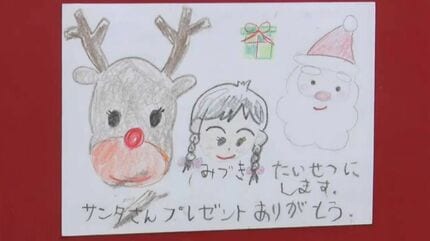 みづき
たいせつに
します。
サンタさんプレゼントありがとう。